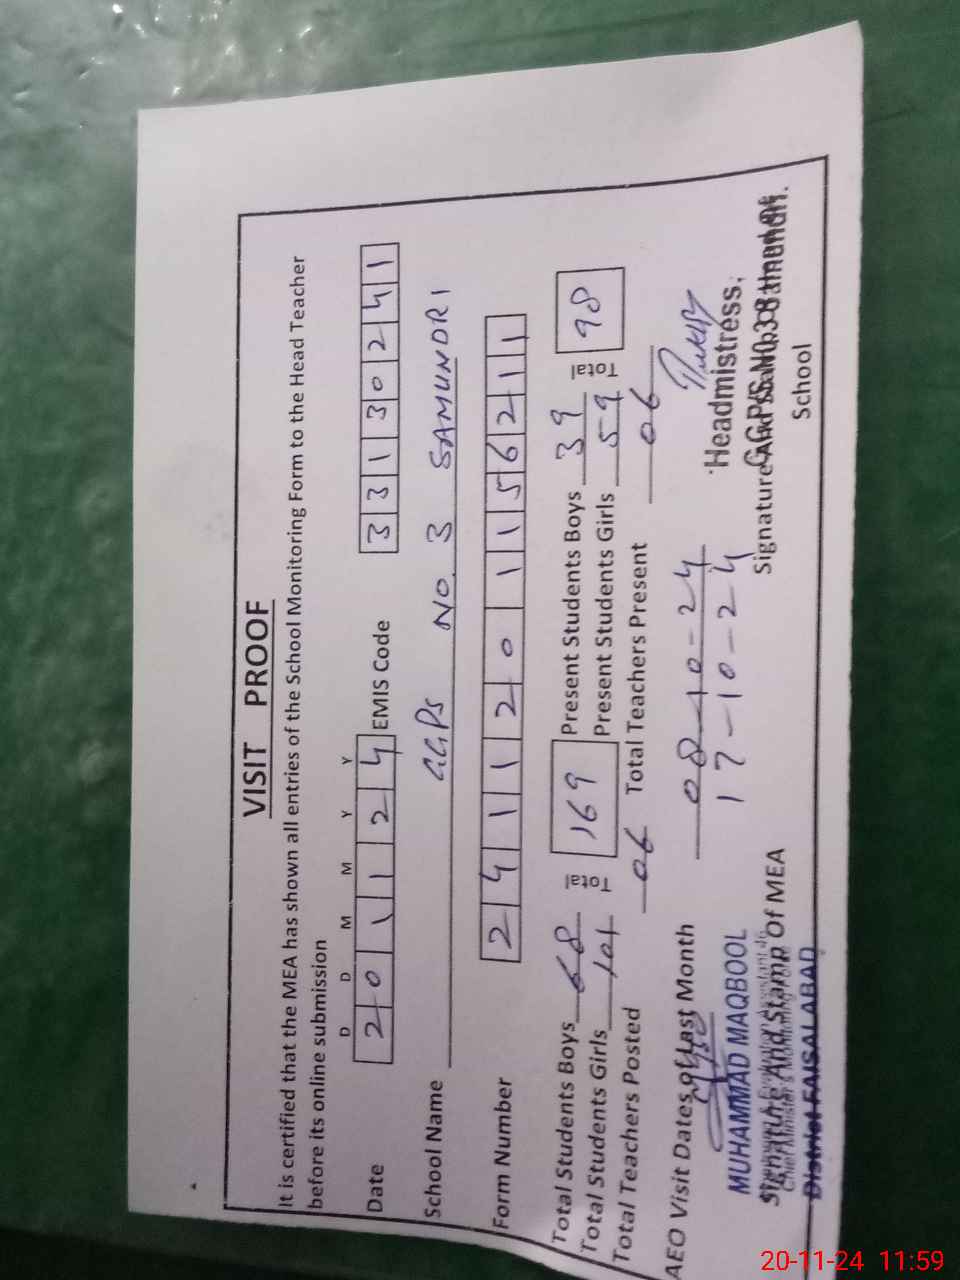 VISIT PROOF
It is certified that the MEA has shown all entries of the School Monitoring Form to the Head Teacher
before its online submission
D D M M Y Y
Date 2 0 1 1 2 4 EMIS Code 3 3 1 3 0 2 4 1
School Name GGPS NO. 3 SAMUNDRI
Form Number 2 4 1 1 2 0 1 1 5 6 2 1 1
Total Students Boys 68 Total 169 Present Students Boys 39 Total 98
Total Students Girls 101 Present Students Girls 59
Total Teachers Posted 06 Total Teachers Present 06
AEO Visit Dates of Last Month 08-10-24
17-10-24
MUHAMMAD MAQBOOL
Headmistress,
G.G.P/S NO.3 Samundri.
Signature And Stamp Of MEA
Signature And Stamp Of
School
District FAISALABAD
20-11-24 11:59